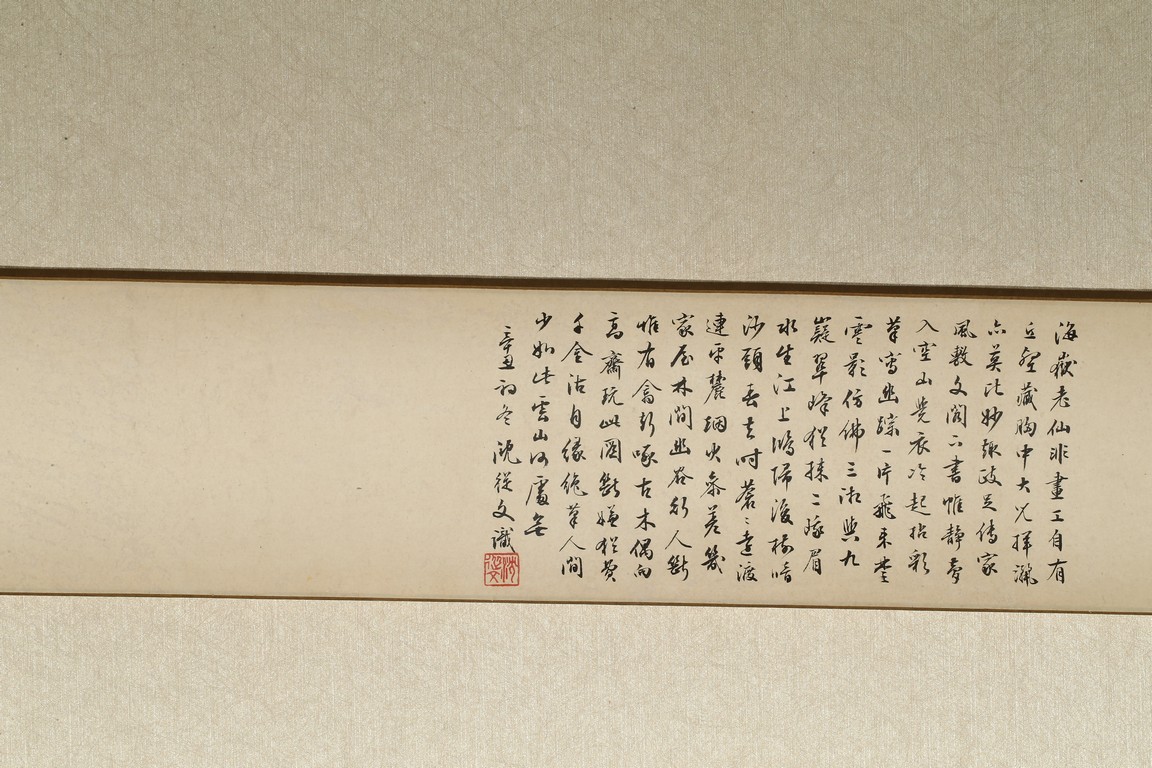 海嶽老仙非畫工自有
丘壑藏胸中大兒揮灑
亦莫比妙趣政足傳家
風敷文閣下書帷静夢
入空山覺衣冷起拈彩
筆寫幽蹤一片飛來楚
雲影仿佛三湘與九
嶷翠峰猶抹二蛾眉
水生江上鴻歸後樹暗
沙頭春去時蒼蒼遠渡
連平麓烟火參差幾
家屋林間幽谷行人斷
惟有禽彭啄古木偶向
高齋玩此圖斷縑猶費
千金沽自緣絶筆人間
少如此雲山何處無
辛丑初冬沈從文識
沈從文